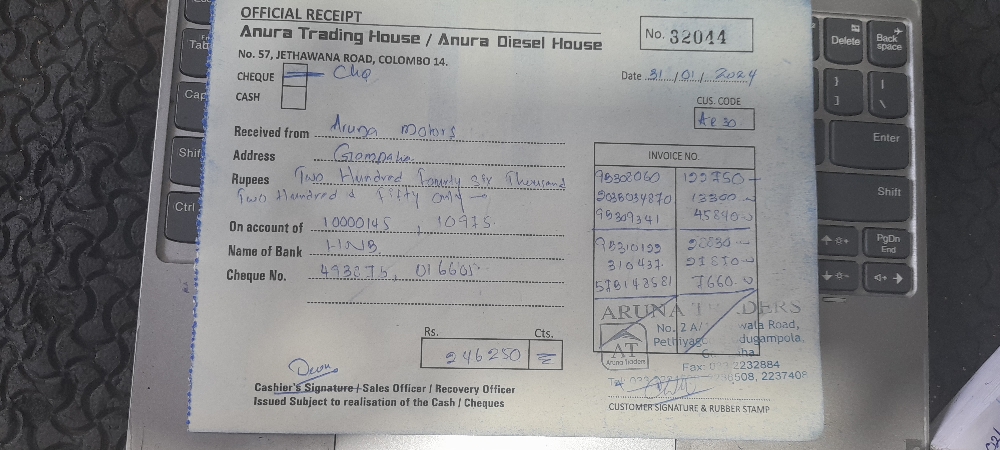 OFFICIAL RECEIPT
Anura Trading House / Anura Diesel House
No. 57, JETHAWANA ROAD, COLOMBO 14.
No. 32044
CHEQUE Chq
CASH
Date 31/01/2024
CUS. CODE
Received from Aruna Motors
Address Gampaha
INVOICE NO.
Rupees Two Hundred Fourty Six Thousand
Two Hundred & Fifty only
On account of 10000145, 10975
Name of Bank HNB
Cheque No. 493875, 016605
95309341 45840
310437
578143581 7660
ARUNA
No. 2 A/ wata Road,
Pethiyag dugampola.
AT
Aruna Traders
2232884
Fax:
508, 2237408
Rs. Cts.
246250
Cashier's Signature / Sales Officer / Recovery Officer
Issued Subject to realisation of the Cash / Cheques
CUSTOMER SIGNATURE & RUBBER STAMP
Tab
Shift
Ctrl
Delete
Back
space
Enter
Shift
PgDn
End